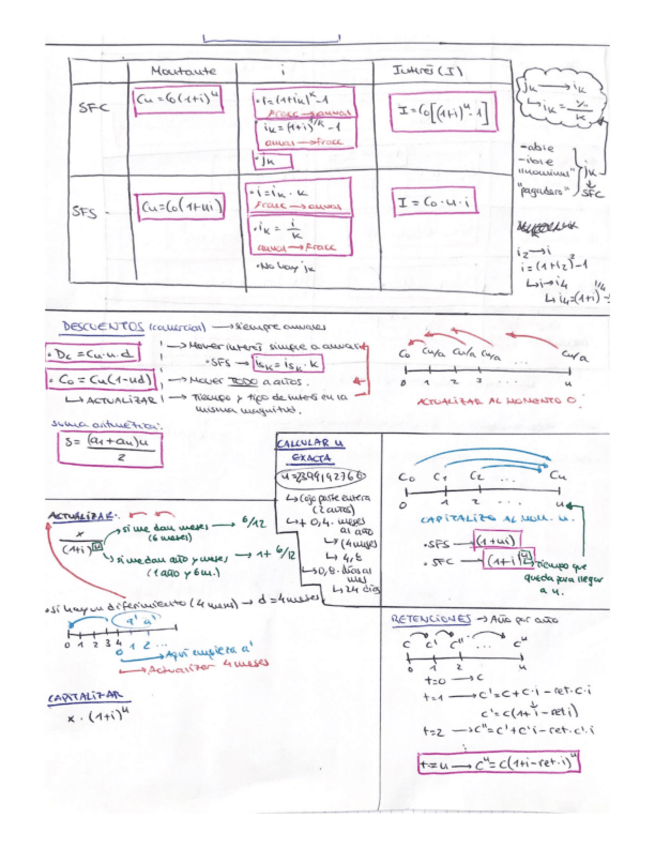 Montante i Interés (I)
SFC Cn = C0(1+i)^n
• i = (1+ik)^k - 1
Fracc → anual
ik = (1+i)^1/k - 1
anual → Fracc
• jk
I = C0[(1+i)^n - 1]
SFS Cn = C0(1+ni)
• i = ik · k
Fracc → anual
• ik = i/k
anual → Fracc
• No hay jk
I = C0 · n · i
jk → ik
↳ ik = jk/k
-able
-ible
"nominal"
"pagadero"
jk
↓
SFC
i2 → i
i = (1+i2)^2 - 1
↳ i → i4
↳ i4 = (1+i)^1/4 -
DESCUENTOS (comercial) → siempre anuales
• Dc = Cn · n · d
• C0 = Cn(1-nd)
↳ ACTUALIZAR
→ Mover interés simple a anual
• SFS → isk = isk · k
→ Mover TODO a años.
→ Tiempo y tipo de interés en la
misma magnitud.
suma aritmética:
S = (a1+an)n / 2
C0 Cn/a Cn/a Cn/a Cn/a
0 1 2 3 ... n
ACTUALIZAR AL MOMENTO 0.
CALCULAR n
EXACTA
n = 2'399142760
↳ Cojo parte entera
(2 años)
↳ + 0,4. meses
al año
↳ (4 meses
↳ 4,8
↳ 0,8. días al
mes
↳ 24 días
C0 C1 C2 ... Cn
0 1 2 ... n
CAPITALIZO AL MOM. n.
• SFS → (1+ni)
• SFC → (1+i)^n → tiempo que
queda para llegar
a n.
ACTUALIZAR.
x / (1+i)^n
→ si me dan meses → 6/12
(6 meses)
→ si me dan año y meses → 1 + 6/12
(1 año y 6m.)
• si hay un diferimiento (4 meses) → d = 4 meses
a' a'
0 1 2 3 4
0 1 2 ...
→ Aquí empieza a'
→ Actualizar 4 meses
CAPITALIZAR
x · (1+i)^n
RETENCIONES → Año por año
C C' C'' ... C^n
0 1 2 n
t=0 → C
t=1 → C' = C + C · i - ret · C · i
C' = C(1 + i - ret · i)
t=2 → C'' = C' + C' · i - ret · C' · i
⋮
t=n → C^n = C(1+i-ret · i)^n